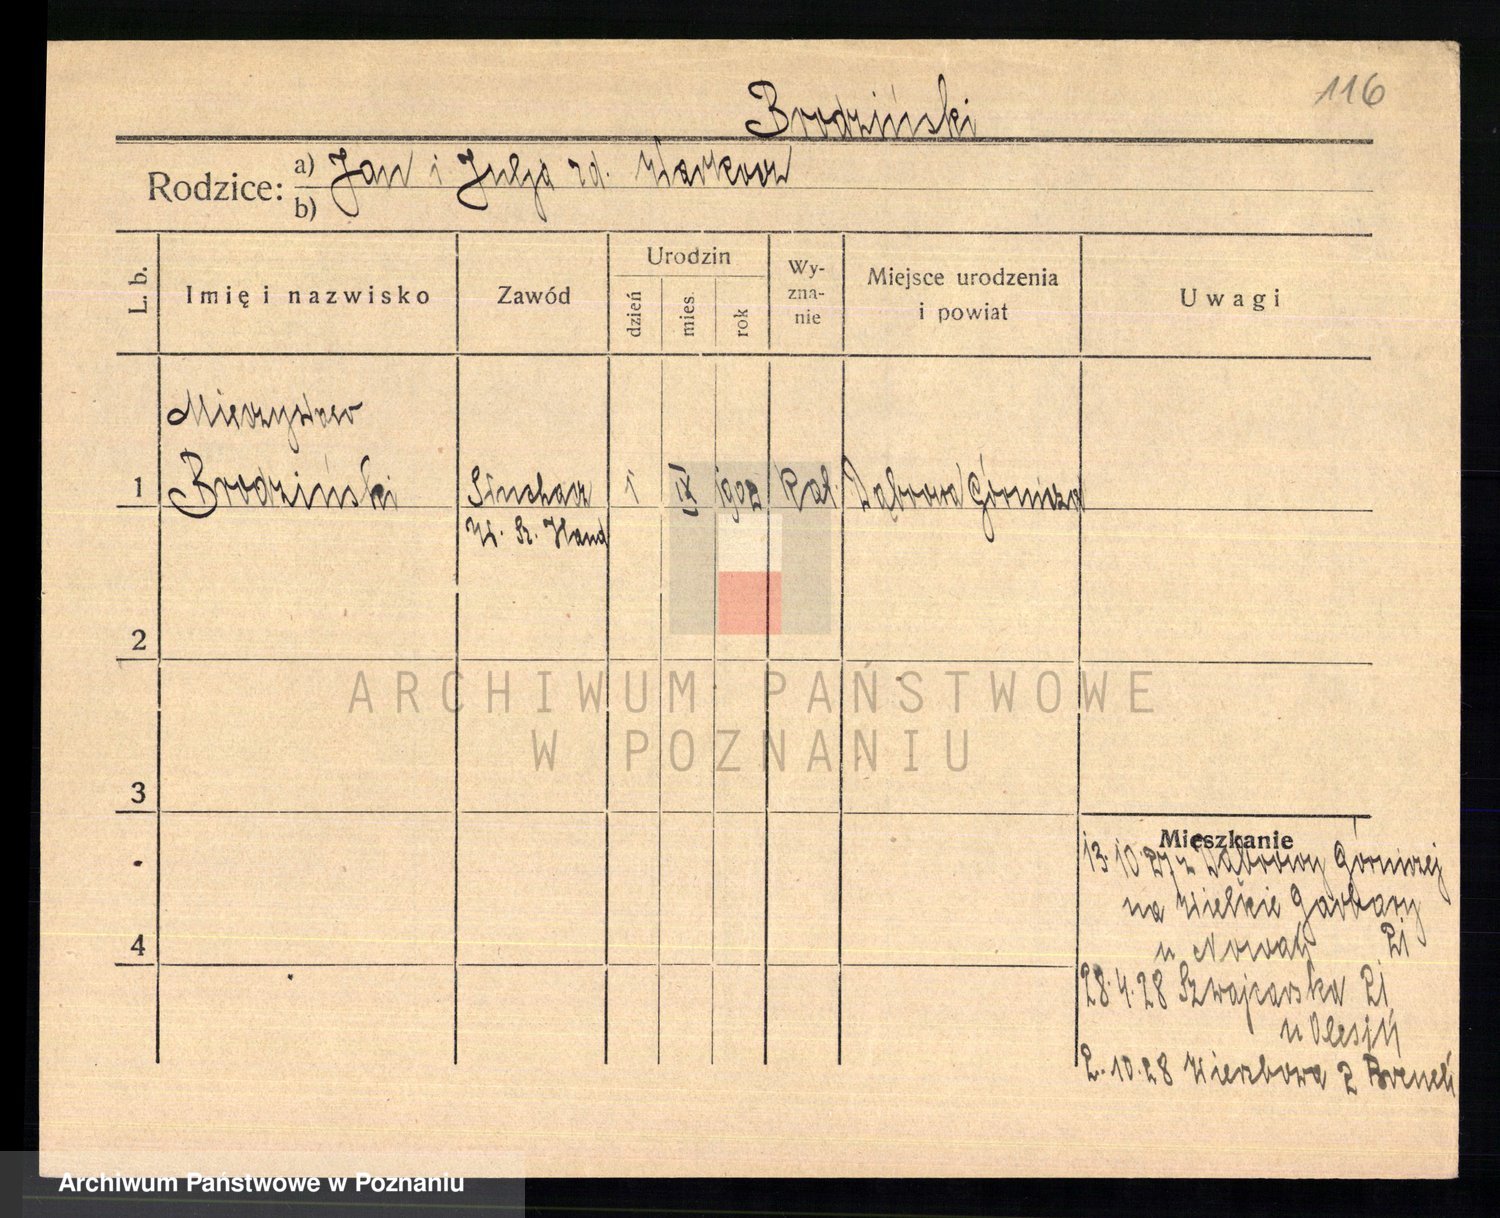 116
Brodziński
Rodzice: a) Jan i Julja zd.
b)
L. b.
Imię i nazwisko
Zawód
Urodzin
dzień
mies.
rok
Wy-
zna-
nie
Miejsce urodzenia
i powiat
Uwagi
Mieczysław
1 Brodziński Słuchacz 1 IX 1902 kat. Dąbrowa Górnicza
W. Sz. Hand
2
3
4
Mieszkanie
13.10.27 z Dąbrowy Górniczej
na Wielkie Garbary
u Nowak 21
28.4.28 Szwajcarska 21
u
2.10.28 Wierzbowa 2
ARCHIWUM PAŃSTWOWE
W POZNANIU
Archiwum Państwowe w Poznaniu